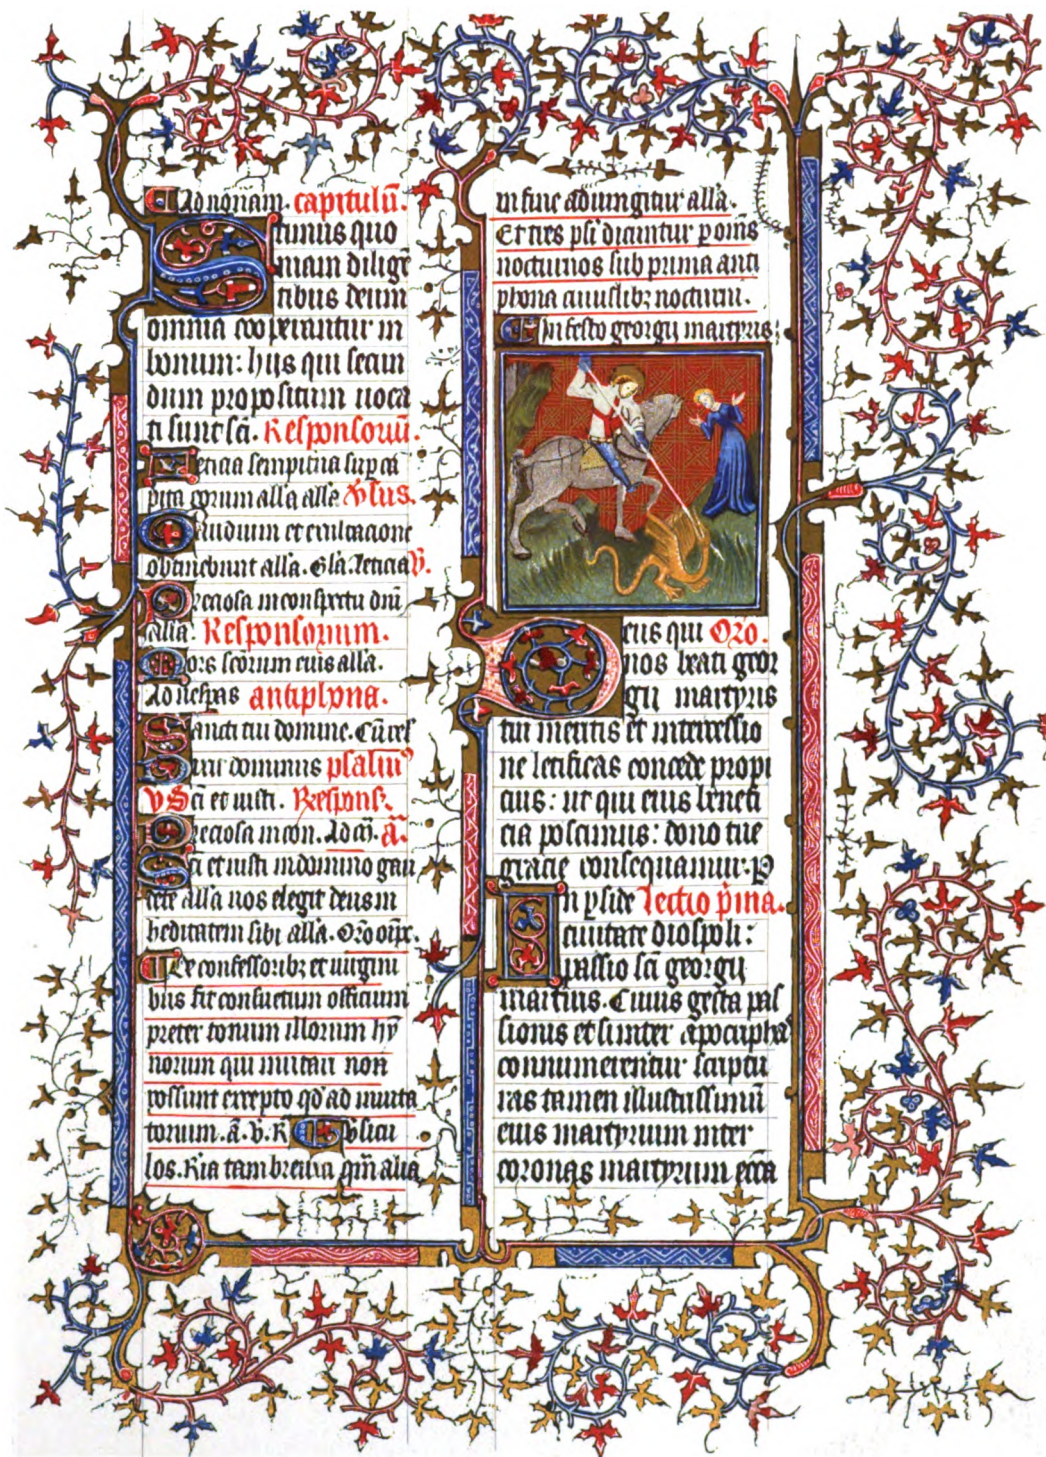 Ad nonam. capitulū.
Scimus quo
niam diligē
tibus deum
omnia cooperantur in
bonum: hiis qui secun
dum propositum uoca
ti sunt sc̄i. Responsoriū.
Leticia sempit̄na sup ca
pita eorum all̄a all̄a v̄sus.
Gaudium et exultacione
obtinebunt all̄a. Gl̄a. leticia v̄.
Preciosa in conspectu dn̄i
all̄a. Responsorium.
Mors sc̄orum eius all̄a.
Ad uesp̄as antiphona.
Sancti tui domine. Cū ces
dominus psalmꝰ
v̄ Sc̄i et iusti. Respons.
Preciosa in con. Ad ā.
Sc̄i et iusti in domino gau
dete all̄a uos elegit deus in
h̄editatem sibi all̄a. Oꝛo
De confessoribꝫ et uirgini
bus fit consuetum officium
preter tonum illorum hȳ
norum qui mutari non
possunt excepto qd̄ ad inuita
torium. ā. v̄. R̄ v̄sicu
los. R̄ia tam breuia qm̄ alia
in fine adiungitur all̄a.
Et tres ps̄i dicuntur p om̄s
nocturnos sub prima anti
phona cuiuslibꝫ nocturni.
In festo georgii martyris:
Deus qui Oꝛo.
nos beati geor
gii martyris
tui meritis et intercessio
ne letificas concede propi
cius: ut qui eius benefi
cia poscimus: dono tue
gracie consequamur. P
In p̱side lectio p̄ma.
ciuitate diospoli:
passio sc̄i georgii
martiris. Cuius gesta pas
sionis et si inter apocripha
connumerentur scriptu
ras tamen illustrissimū
eius martyrium inter
coronas martyrum ecc̄a